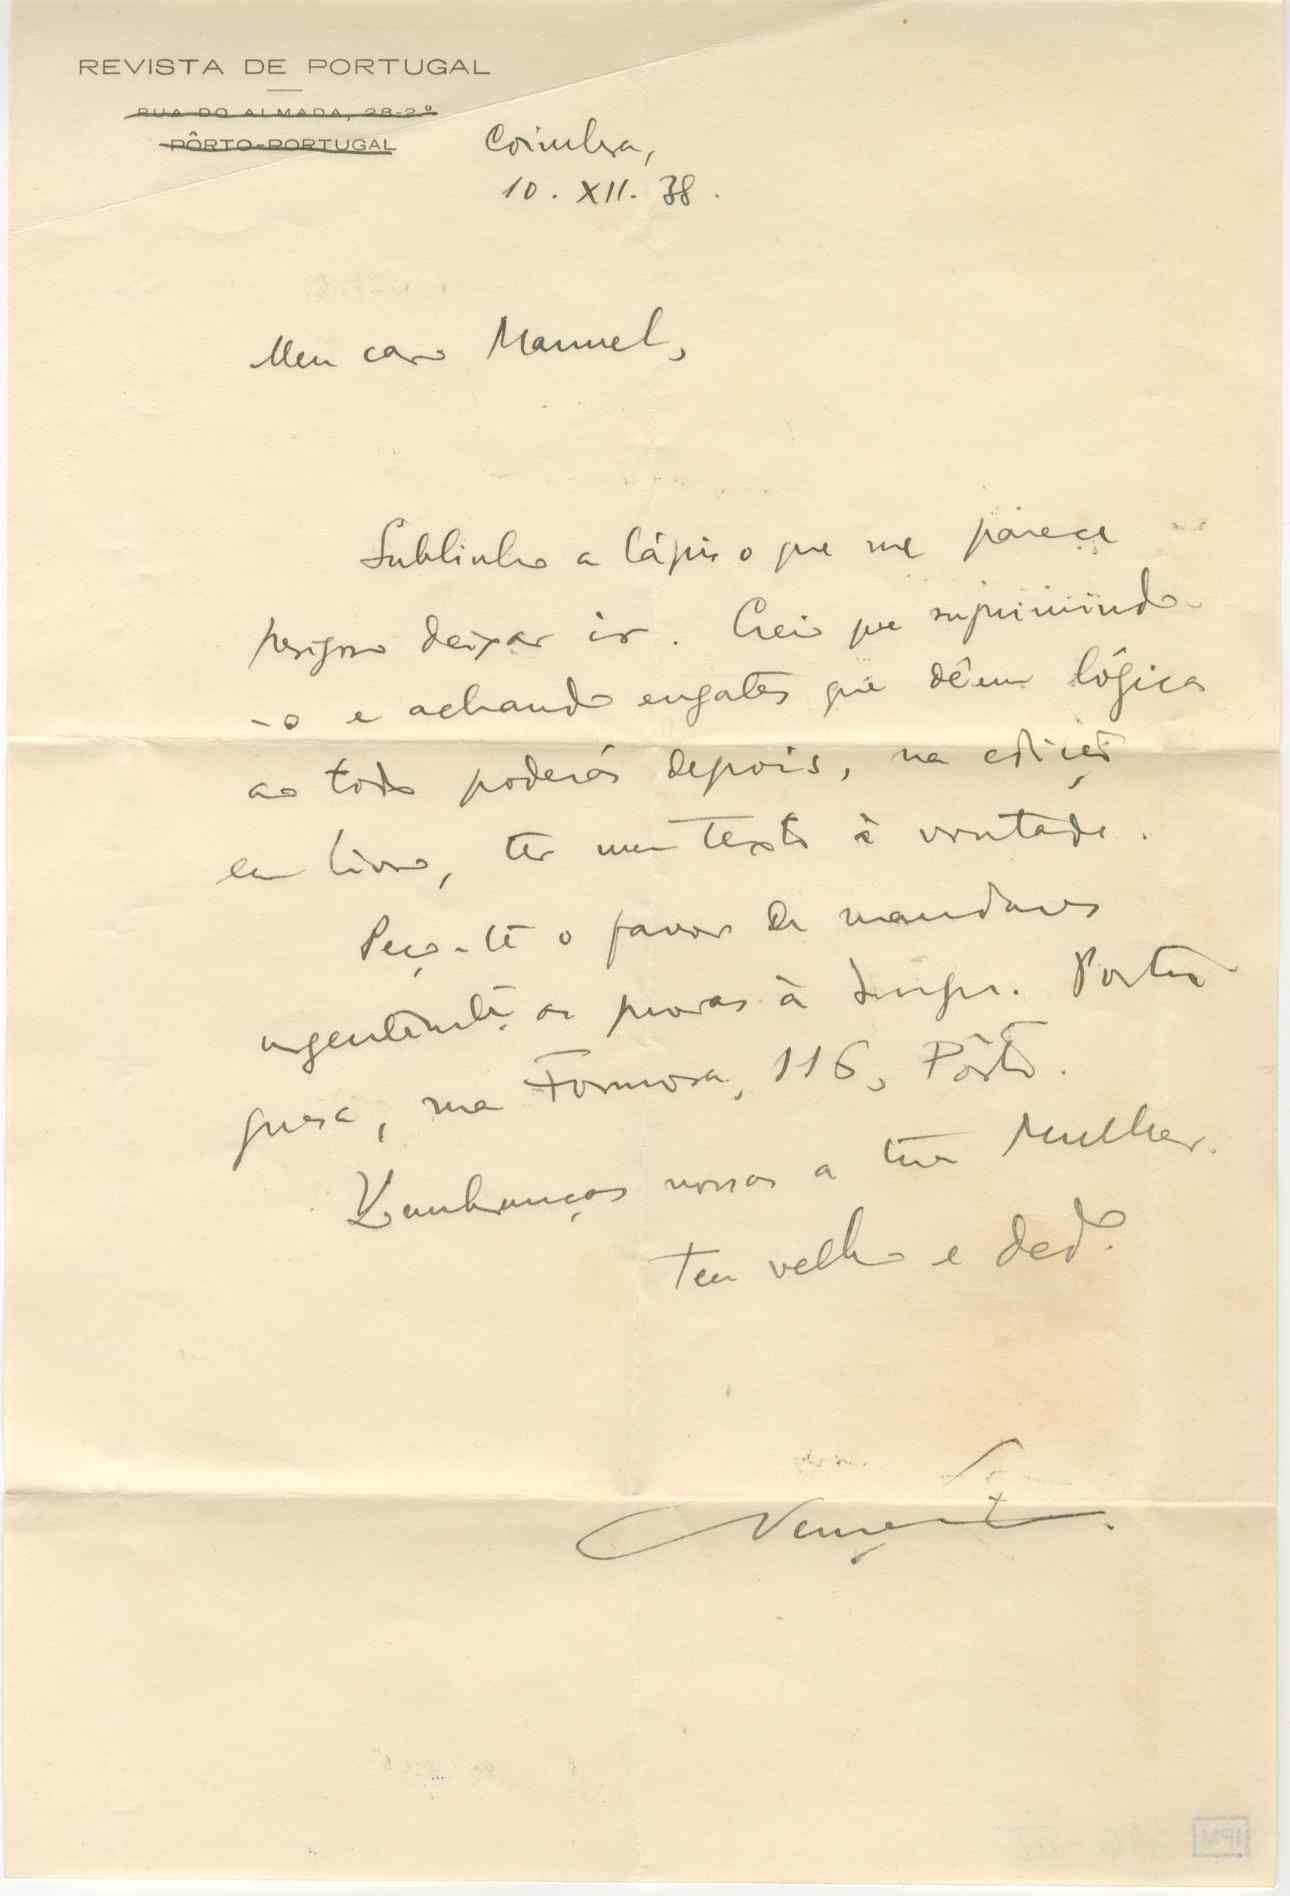 REVISTA DE PORTUGAL
RUA DO ALMADA, 28-2º
PÔRTO-PORTUGAL
Coimbra,
10. XII. 38.
Meu caro Manuel,
Sublinho a lápis o que me parece
perigoso deixar ir. Creio que suprimindo-
-o e achando engates que dêem lógica
ao todo poderás depois, na edição
em livro, ter um texto à vontade.
Peço-te o favor de mandares
urgentemte. as provas à Imprª. Portu
guesa, rua Formosa, 116, Pôrto.
Lembranças nossas a tua Mulher.
Teu velho e dedº.
Nemésio
IPM